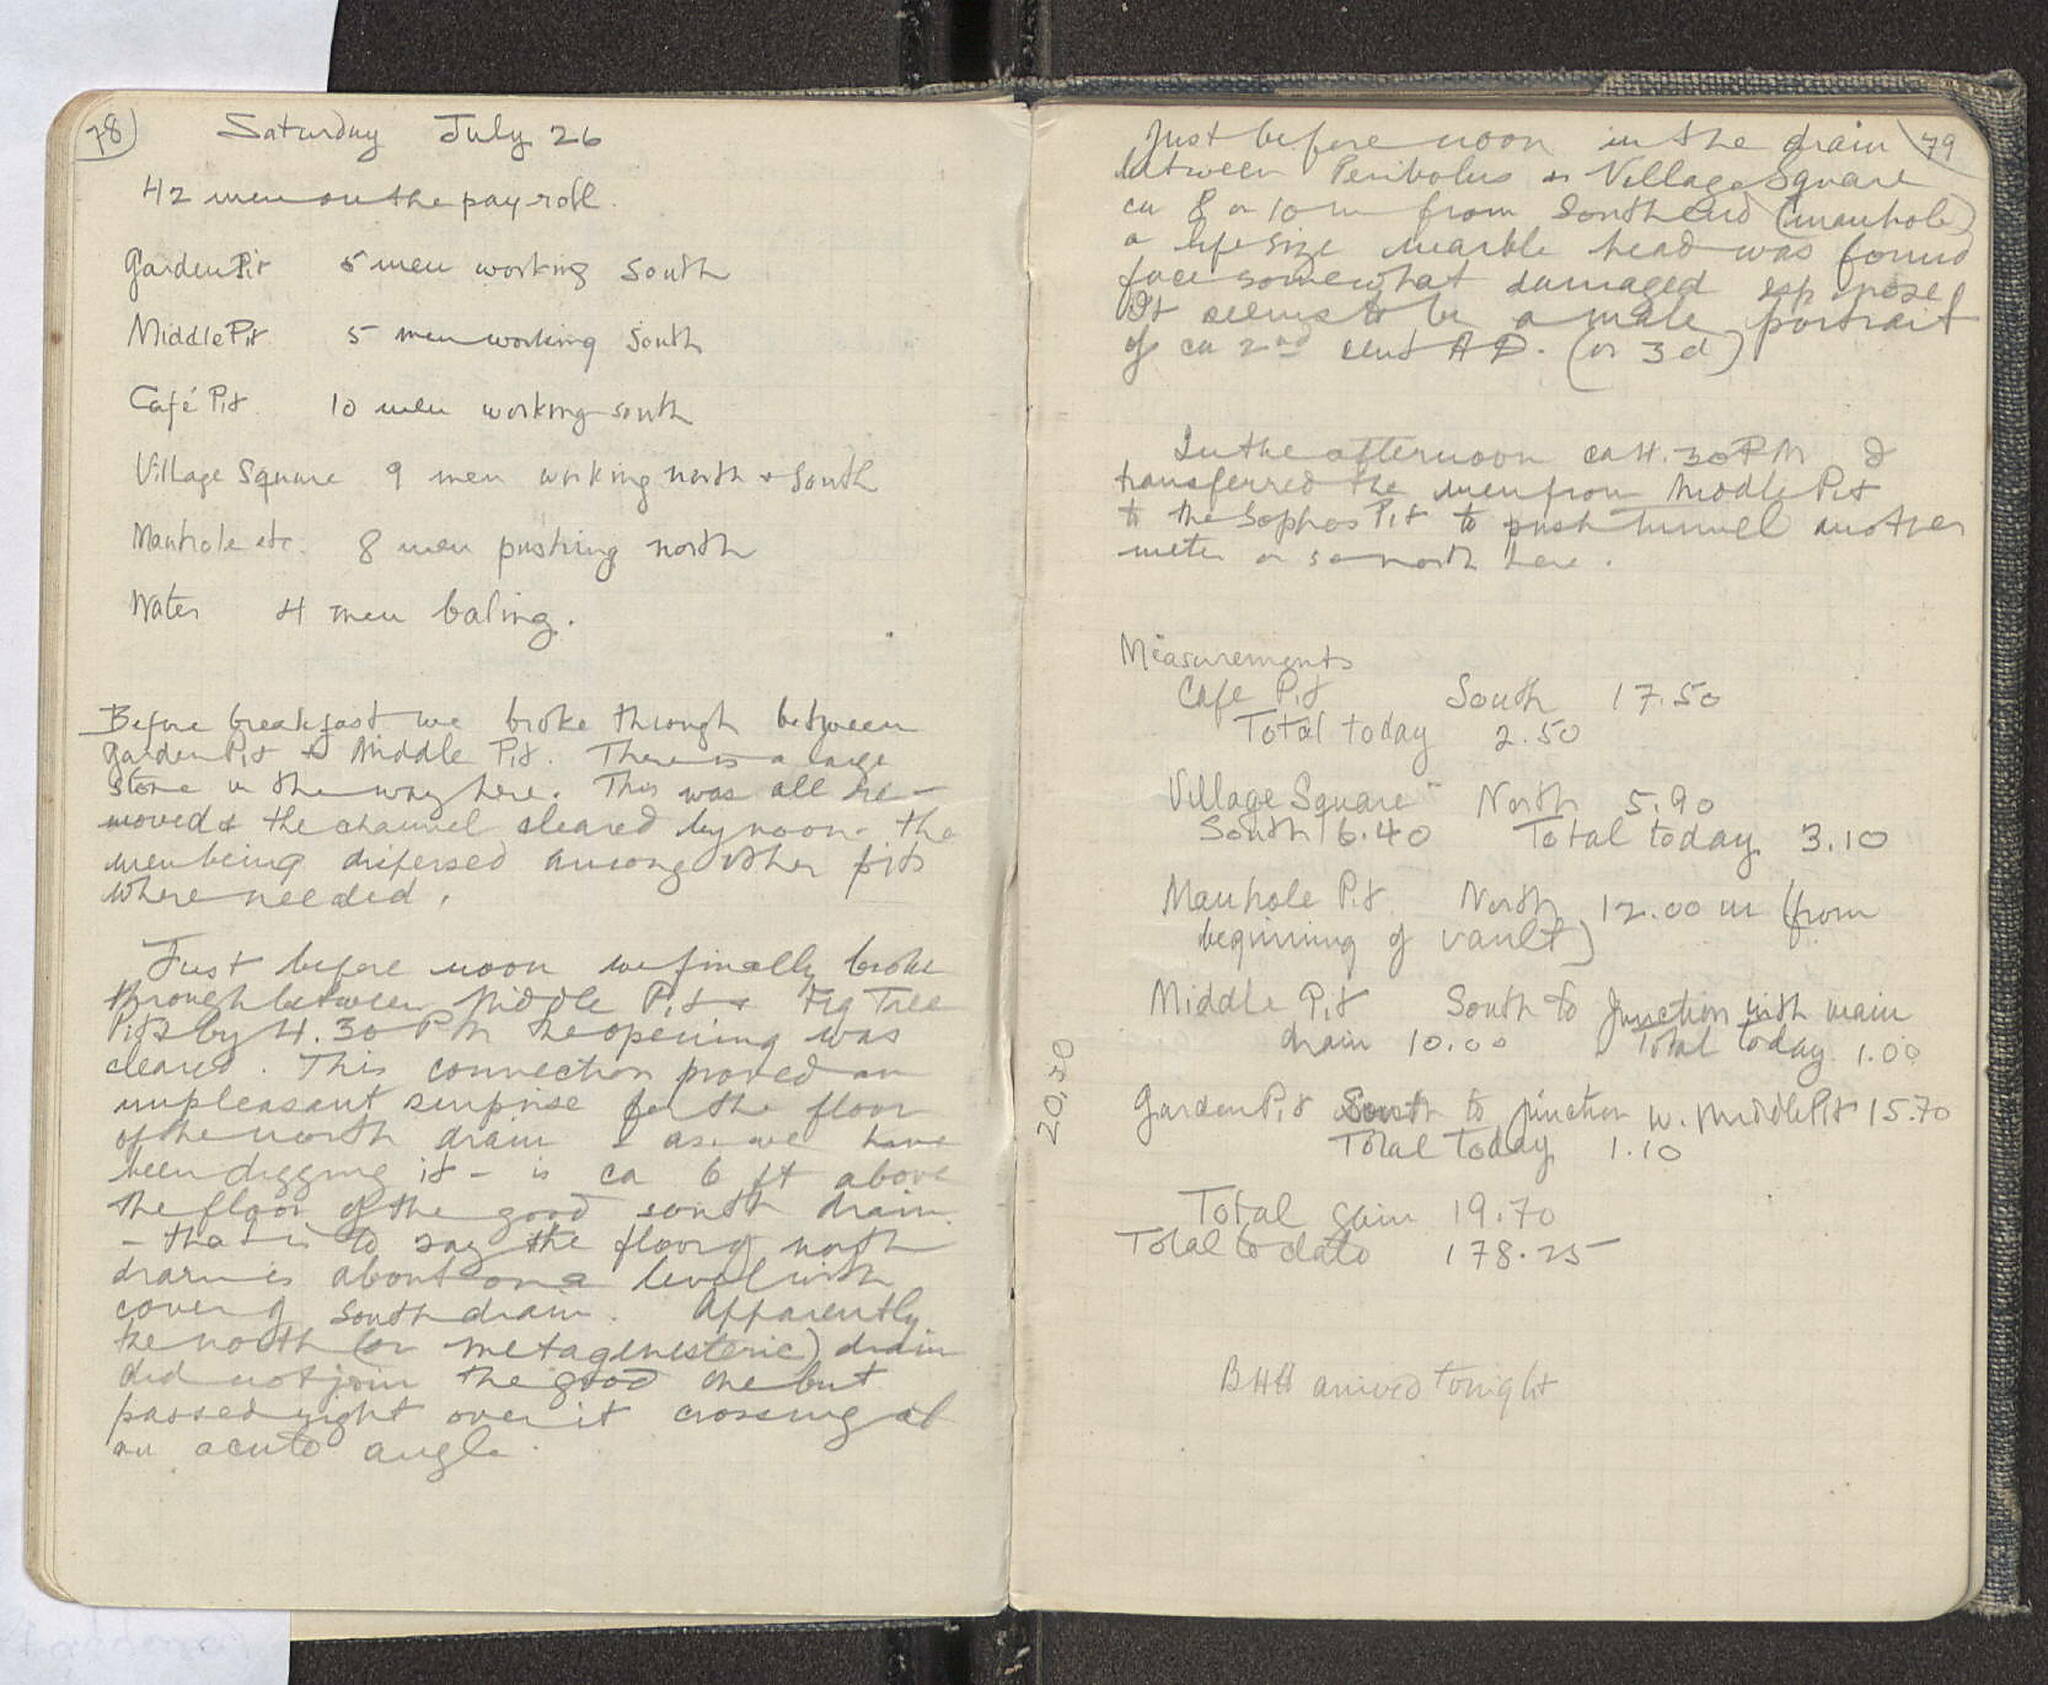 78
Saturday July 26
42 men on the payroll.
Garden Pit 5 men working South
Middle Pit 5 men working South
Café Pit 10 men working south
Village Square 9 men working north + South
Manhole etc. 8 men pushing north
Water 4 men baling.
Before breakfast we broke through between
Garden Pit & Middle Pit. There is a large
stone in the way here. This was all re-
moved & the channel cleared by noon - the
men being dispersed among other pits
where needed.
Just before noon we finally broke
through between Middle Pit & Fig Tree
Pit & by 4.30 PM the opening was
cleared. This connection proved an
unpleasant surprise for the floor
of the north drain - as we have
been digging it - is ca 6 ft above
the floor of the good south drain
- that is to say the floor of north
drain is about on a level with
cover of South drain. Apparently
the north (or metagenesteric) drain
did not join the good one but
passed right over it crossing at
an acute angle.
79
Just before noon in the drain
between Peribolus & Village Square
ca 8 or 10 m from South end (manhole)
a life size marble head was found
face somewhat damaged esp nose
It seems to be a male portrait
of ca 2nd cent A.D. (or 3d)
In the afternoon ca 4.30 PM I
transferred the men from Middle Pit
to the Sophos Pit to push Tunnel another
meter or so north here.
Measurements
Cafe Pit South 17.50
Total today 2.50
Village Square North 5.90
South 6.40 Total today 3.10
Manhole Pit North 12.00 m (from
beginning of vault)
Middle Pit South to Junction with main
drain 10.00 Total today 1.00
20,50
Garden Pit South to junction w. Middle Pit 15.70
Total today 1.10
Total gain 19.70
Total to date 178.25
BHH arrived tonight